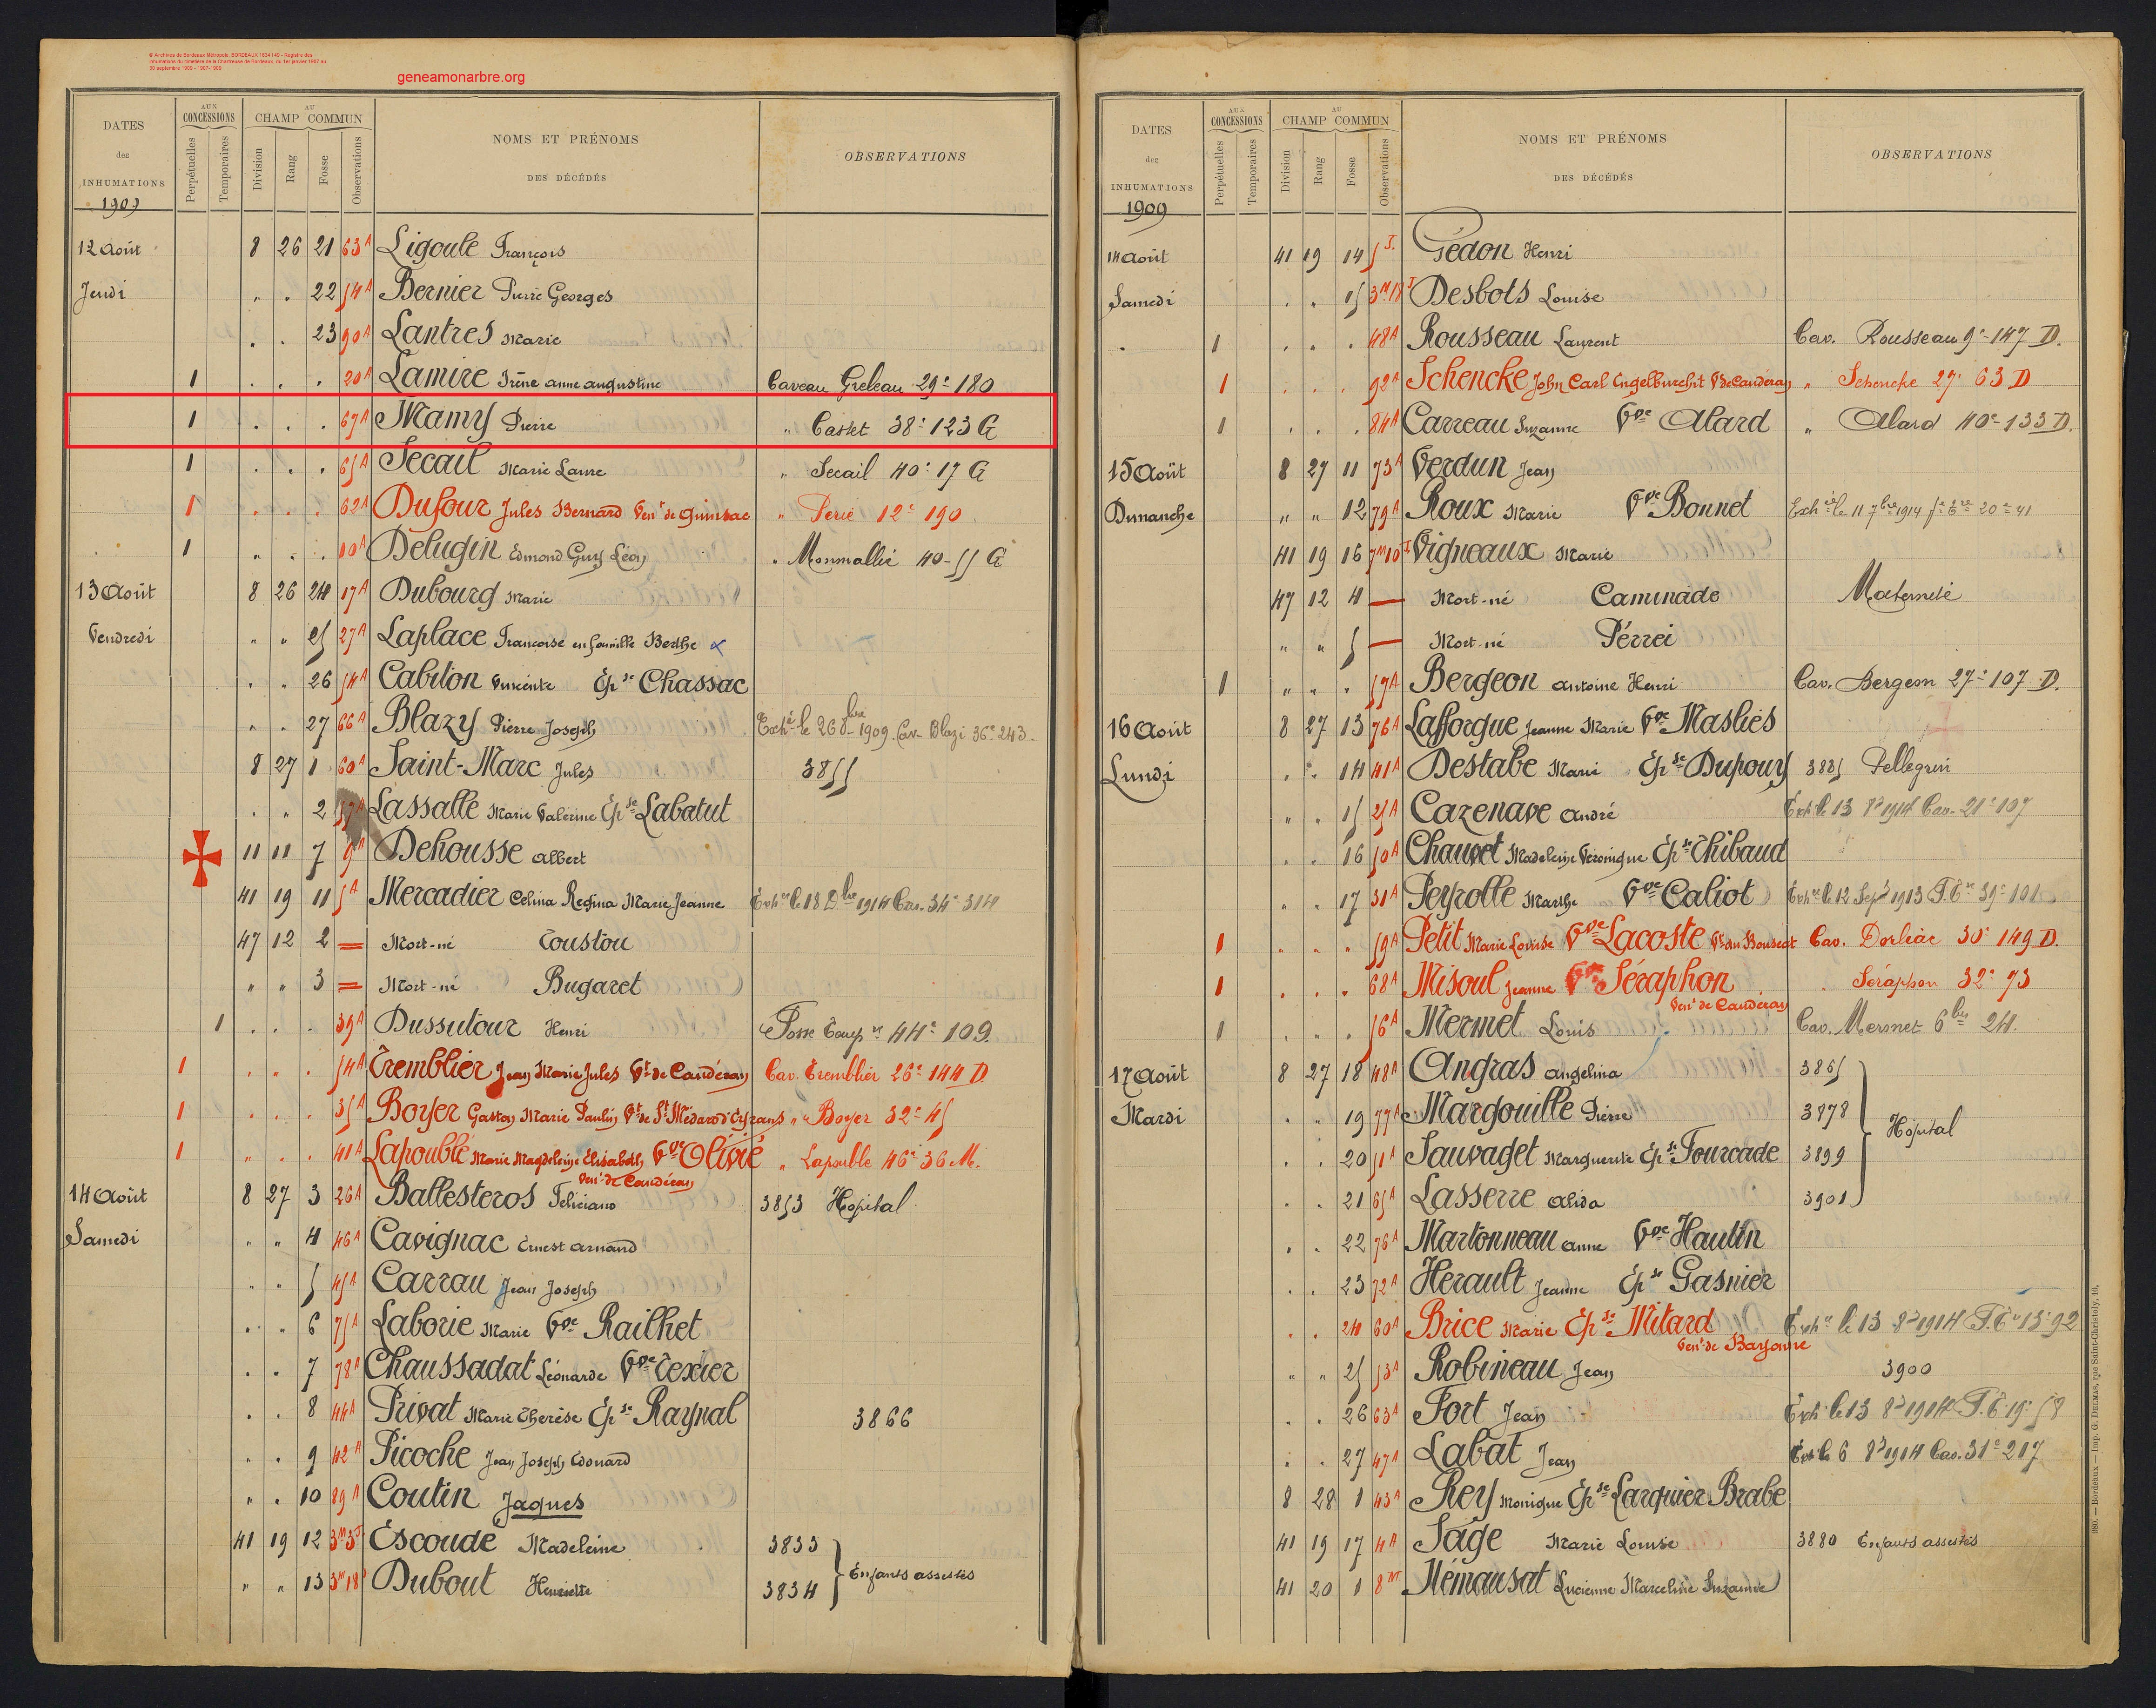 © Archives de Bordeaux Métropole, BORDEAUX 1634 I 49 - Registre des
inhumations du cimetière de la Chartreuse de Bordeaux, du 1er janvier 1907 au
30 septembre 1909 - 1907-1909
geneamonarbre.org
DATES des INHUMATIONS
AUX CONCESSIONS
Perpétuelles Temporaires
AU CHAMP COMMUN
Division Rang Fosse Observations
NOMS ET PRÉNOMS DES DÉCÉDÉS
OBSERVATIONS
1909
12 Août 8 26 21 63A Ligoule François
Jeudi " . 22 54A Bernier Pierre Georges
. . 23 90A Lantres Marie
1 . . . 20A Lamire Irène anne augustine Caveau Greleau 29e 180
1 . . . 67A Mamy Pierre " Castet 38e 123 G
1 . . . 65A Secail Marie Laure " Secail 40e 17 G
1 . . . 62A Dufour Jules Bernard Vent de Quinsac " Perié 12e 190
1 " . . 10A Delugin Edmond Guy Léon " Monmallié 40-55 G
13 Août 8 26 24 17A Dubourg Marie
Vendredi " " 25 27A Laplace Françoise en famille Berthe
. . 26 54A Cabilon Vincente Épse Chassac
. . 27 66A Blazy Pierre Joseph Exhé le 26 8bre 1909. Cav- Blazi 36e 243.
8 27 1 60A Saint-Marc Jules 3855
. . 2 57A Lassalle Marie Valérine Épse Labatut
11 11 7 9A Dehousse Albert
41 19 11 5A Mercadier Celina Regina Marie Jeanne Exhée le 18 Dbre 1914 Cav. 34e 314
47 12 2 = Mort-né Toustou
" " 3 = Mort-né Bugaret
1 . . . 39A Dussutour Henri Fosse Temp re 44e 109.
1 . . . 54A Tremblier Jean Marie Jules Vt de Caudéran Cav. Tremblier 26e 144 D
1 . . . 35A Boyer Gaston Marie Paulin Vt de St Médard d'Eyrans " Boyer 32e 45
1 " . . 41A Lapouble Marie Magdeleine Elisabeth Vve Olivié " Lapouble 46e 36 M.
Vent de Caudéran
14 Août 8 27 3 26A Ballesteros Feliciano 3853 Hopital
Samedi " " 4 46A Cavignac Ernest Arnaud
. . 5 45A Carrau Jean Joseph
. . 6 75A Laborie Marie Vve Railhet
. . 7 78A Chaussadat Léonarde Vve Texier
. . 8 44A Privat Marie Therèse Épse Raynal 3866
. . 9 42A Picoche Jean Joseph Edouard
" . 10 89A Coutin Jaques
41 19 12 3M3J Escoude Madeleine 3833
" " 13 3M18J Dubout Henriette 3834
Enfants assistés
DATES des INHUMATIONS
AUX CONCESSIONS
Perpétuelles Temporaires
AU CHAMP COMMUN
Division Rang Fosse Observations
NOMS ET PRÉNOMS DES DÉCÉDÉS
OBSERVATIONS
1909
14 Août 41 19 14 5J. Gédon Henri
Samedi . . 15 3M18J Desbots Louise
1 . . . 48A Rousseau Laurent Cav. Rousseau 9e-147 D.
1 . . . 92A John Carl Schencke Vt de Caudéran " Schencke 27e 63 D
1 . . . 84A Carreau Suzanne Vve Alard " Alard 40e-133 D.
15 Août 8 27 11 73A Verdun Jean
Dimanche " " 12 79A Roux Marie Vve Bonnet Exhée le 11 7bre 1914 20e 41
41 19 16 7M10J Vigneaux Marie
47 12 4 — Mort-né Caminade Maternité
" " 5 — Mort-né Perrei
1 " " . 57A Bergeon Antoine Henri Cav. Bergeon 27e 107 D.
16 Août 8 27 13 76A Lafforgue Jeanne Marie Vve Masliès
Lundi . . 14 41A Destabe Marie Épse Dupouy 3885 Pellegrin
" . 15 25A Cazenave André Exh le 13 8re 1914 Cav. 21e 107
. . 16 50A Chauvet Madeleine Veronique Épse Thibaud
. . 17 31A Peyrolle Marthe Vve Caliot Exhée le 12 Sept 1913 F.T re 39e 101
1 . . . 59A Petit Marie Louise Vve Lacoste Vt du Bouscat Cav. Dorliac 30e 149 D.
1 . . . 68A Misoul Jeanne Vve Séraphon . Séraphon 32e 73
Vent de Caudéran
1 . . . 56A Mermet Louis Cav. Mermet 6 bis 24.
17 Août 8 27 18 48A Angras Angelina 3865
Mardi . . 19 77A Margouille Pierre 3878
. . 20 51A Sauvaget Marguerite Épse Fourcade 3899
. . 21 65A Lasserre Alida 3901
Hôpital
. . 22 76A Martonneau Anne Vve Hautin
. . 23 72A Herault Jeanne Épse Gasnier
. . 24 60A Brice Marie Épse Mitard Exhée le 13 8re 1914 F.T re 13e 92
Vent de Bayonne
" " 25 53A Robineau Jean 3900
. . 26 63A Fort Jean Exh le 13 8re 1914 F.T. 19e 58
. . 27 47A Labat Jean Exh le 6 8re 1914 Cav. 31e 217
8 28 1 43A Rey Monique Épse Larquier Brabe
41 19 17 4A Sage Marie Louise 3880 Enfants assistés
41 20 1 8M Némausat Lucienne Marceline Suzanne
980. — Bordeaux — Imp. G. DELMAS, rue Saint-Christoly, 10.